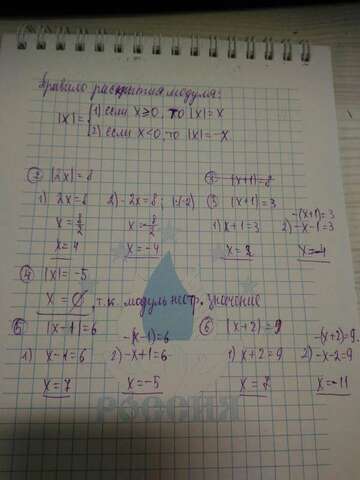 Правило раскрытия модуля:
|x|= { 1) если x≥0, то |x|=x
2) если x<0, то |x|=-x
② |2x|=8
1) 2x=8 2) -2x=8 | :(-2)
x=8/2 x=-8/2
x=4 x=-4
③ |x+1|=8
③ |x+1|=3
-(x+1)=3
1) x+1=3 2) -x-1=3
x=2 x=-4
④ |x|=-5
x=∅, т.к. модуль неотр. значение
⑤ |x-1|=6
-(x-1)=6
1) x-1=6 2) -x+1=6
x=7 x=-5
⑥ |x+2|=9
-(x+2)=9.
1) x+2=9 2) -x-2=9
x=7 x=-11
РОССИЯ